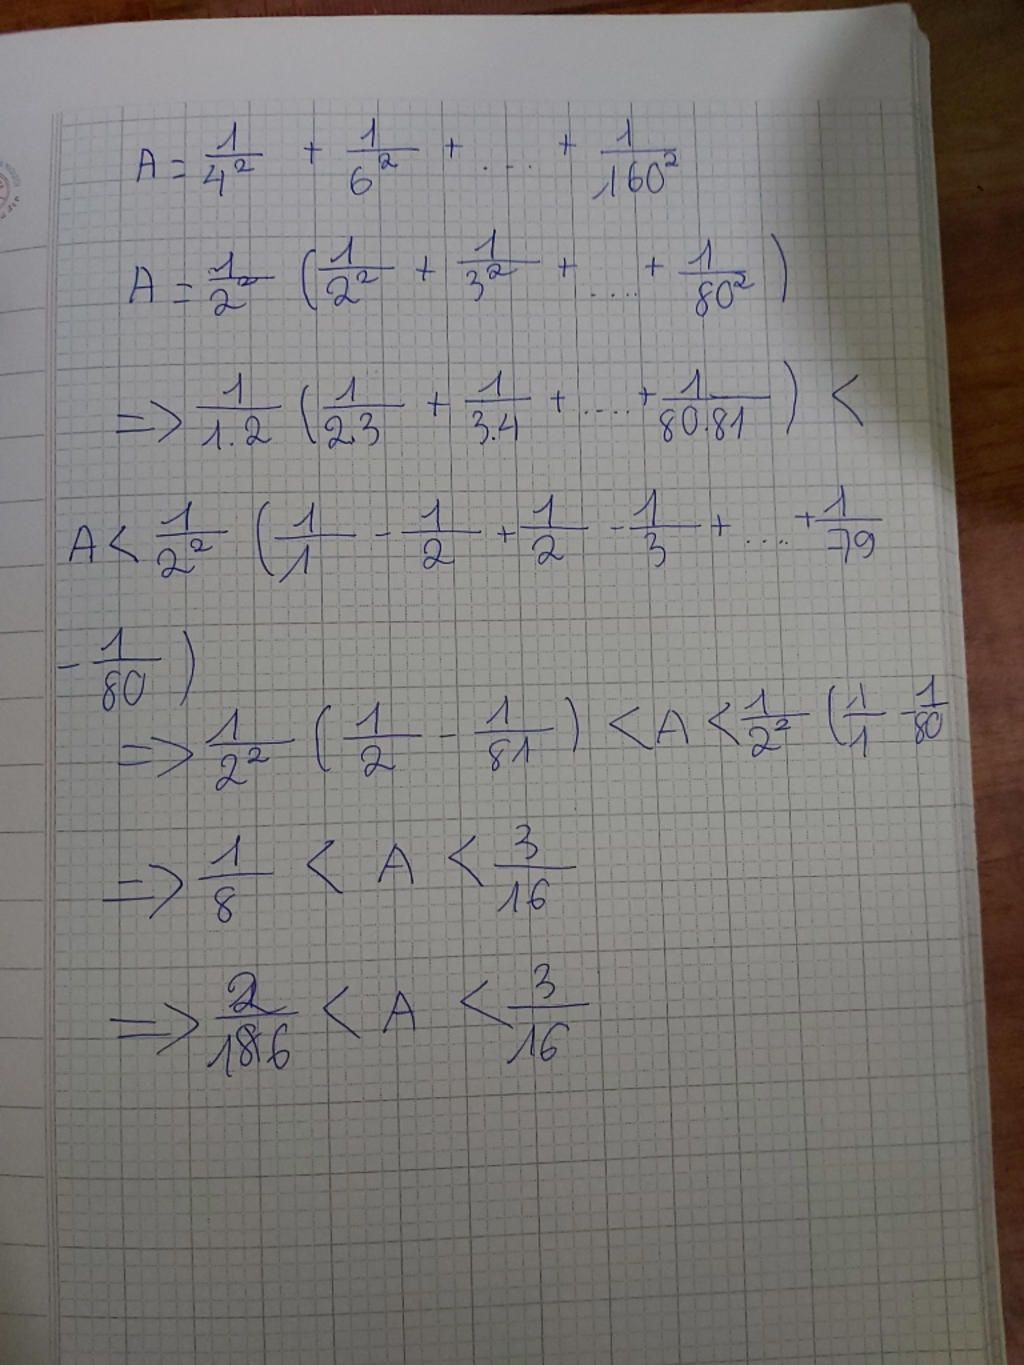 A = 1/4² + 1/6² + .... + 1/160²
A = 1/2² (1/2² + 1/3² + .... + 1/80²)
=> 1/1.2 (1/2.3 + 1/3.4 + .... + 1/80.81) <
A < 1/2² (1/1 - 1/2 + 1/2 - 1/3 + .... + 1/79
- 1/80)
=> 1/2² (1/2 - 1/81) < A < 1/2² (1/1 - 1/80
=> 1/8 < A < 3/16
=> 2/16 < A < 3/16